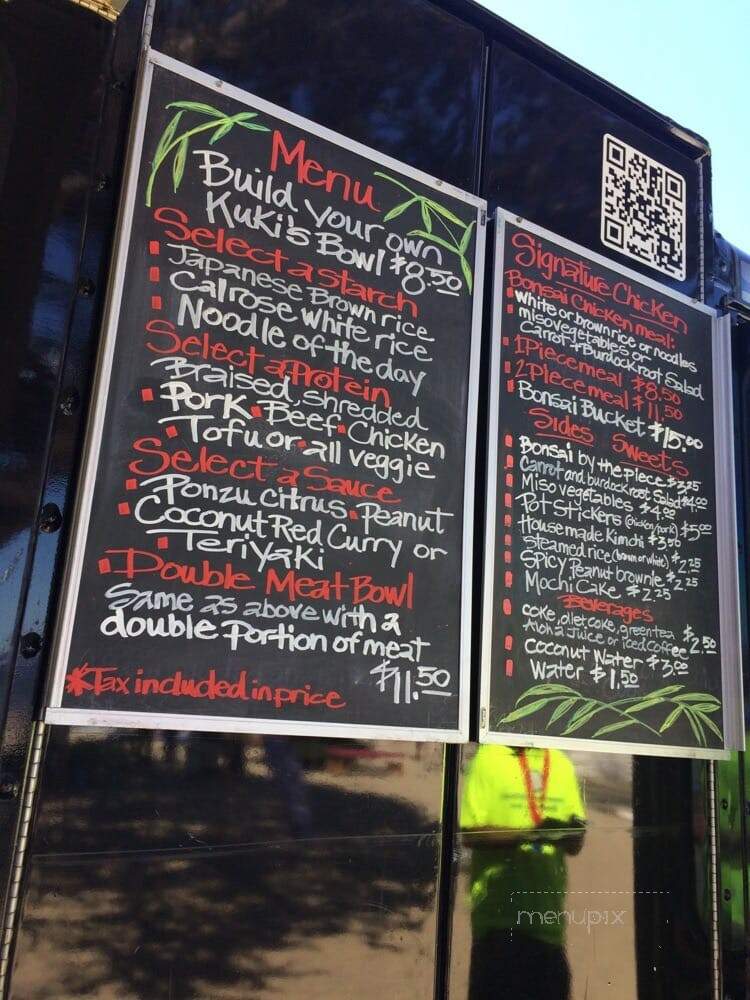 Menu
Build your own
Kuki's Bowl $8.50
Select a Starch
Japanese Brown rice
Calrose white rice
Noodle of the day
Select a Protein
Braised, shredded
Pork Beef Chicken
Tofu or all veggie
Select a Sauce
Ponzu citrus Peanut
Coconut Red Curry or
Teriyaki
Double Meat Bowl
Same as above with a
double portion of meat
$11.50
*Tax included in price
Signature Chicken
Bonsai Chicken meal:
White or brown rice or noodles
miso vegetables or
Carrot + Burdock root Salad
1 Piece meal $8.50
2 Piece meal $11.50
Bonsai Bucket $15.00
Sides Sweets
Bonsai by the piece $3.25
Carrot and burdock root Salad $4.00
Miso vegetables $4.00
Pot Stickers (chicken/pork) $5.00
House made Kimchi $3.50
Steamed rice (brown or white) $2.25
Spicy Peanut brownie $2.25
Mochi Cake $2.25
Beverages
coke, diet coke, green tea
Aloha Juice or iced coffee $2.50
Coconut Water $3.00
Water $1.50
menupix